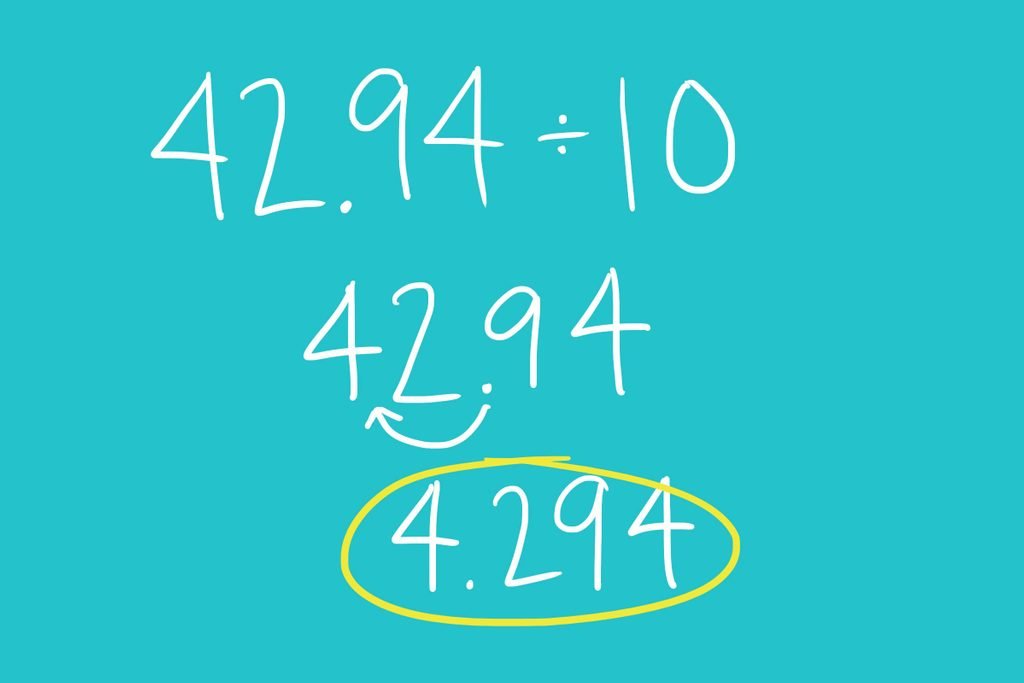 42.94÷10
42.94
4.294